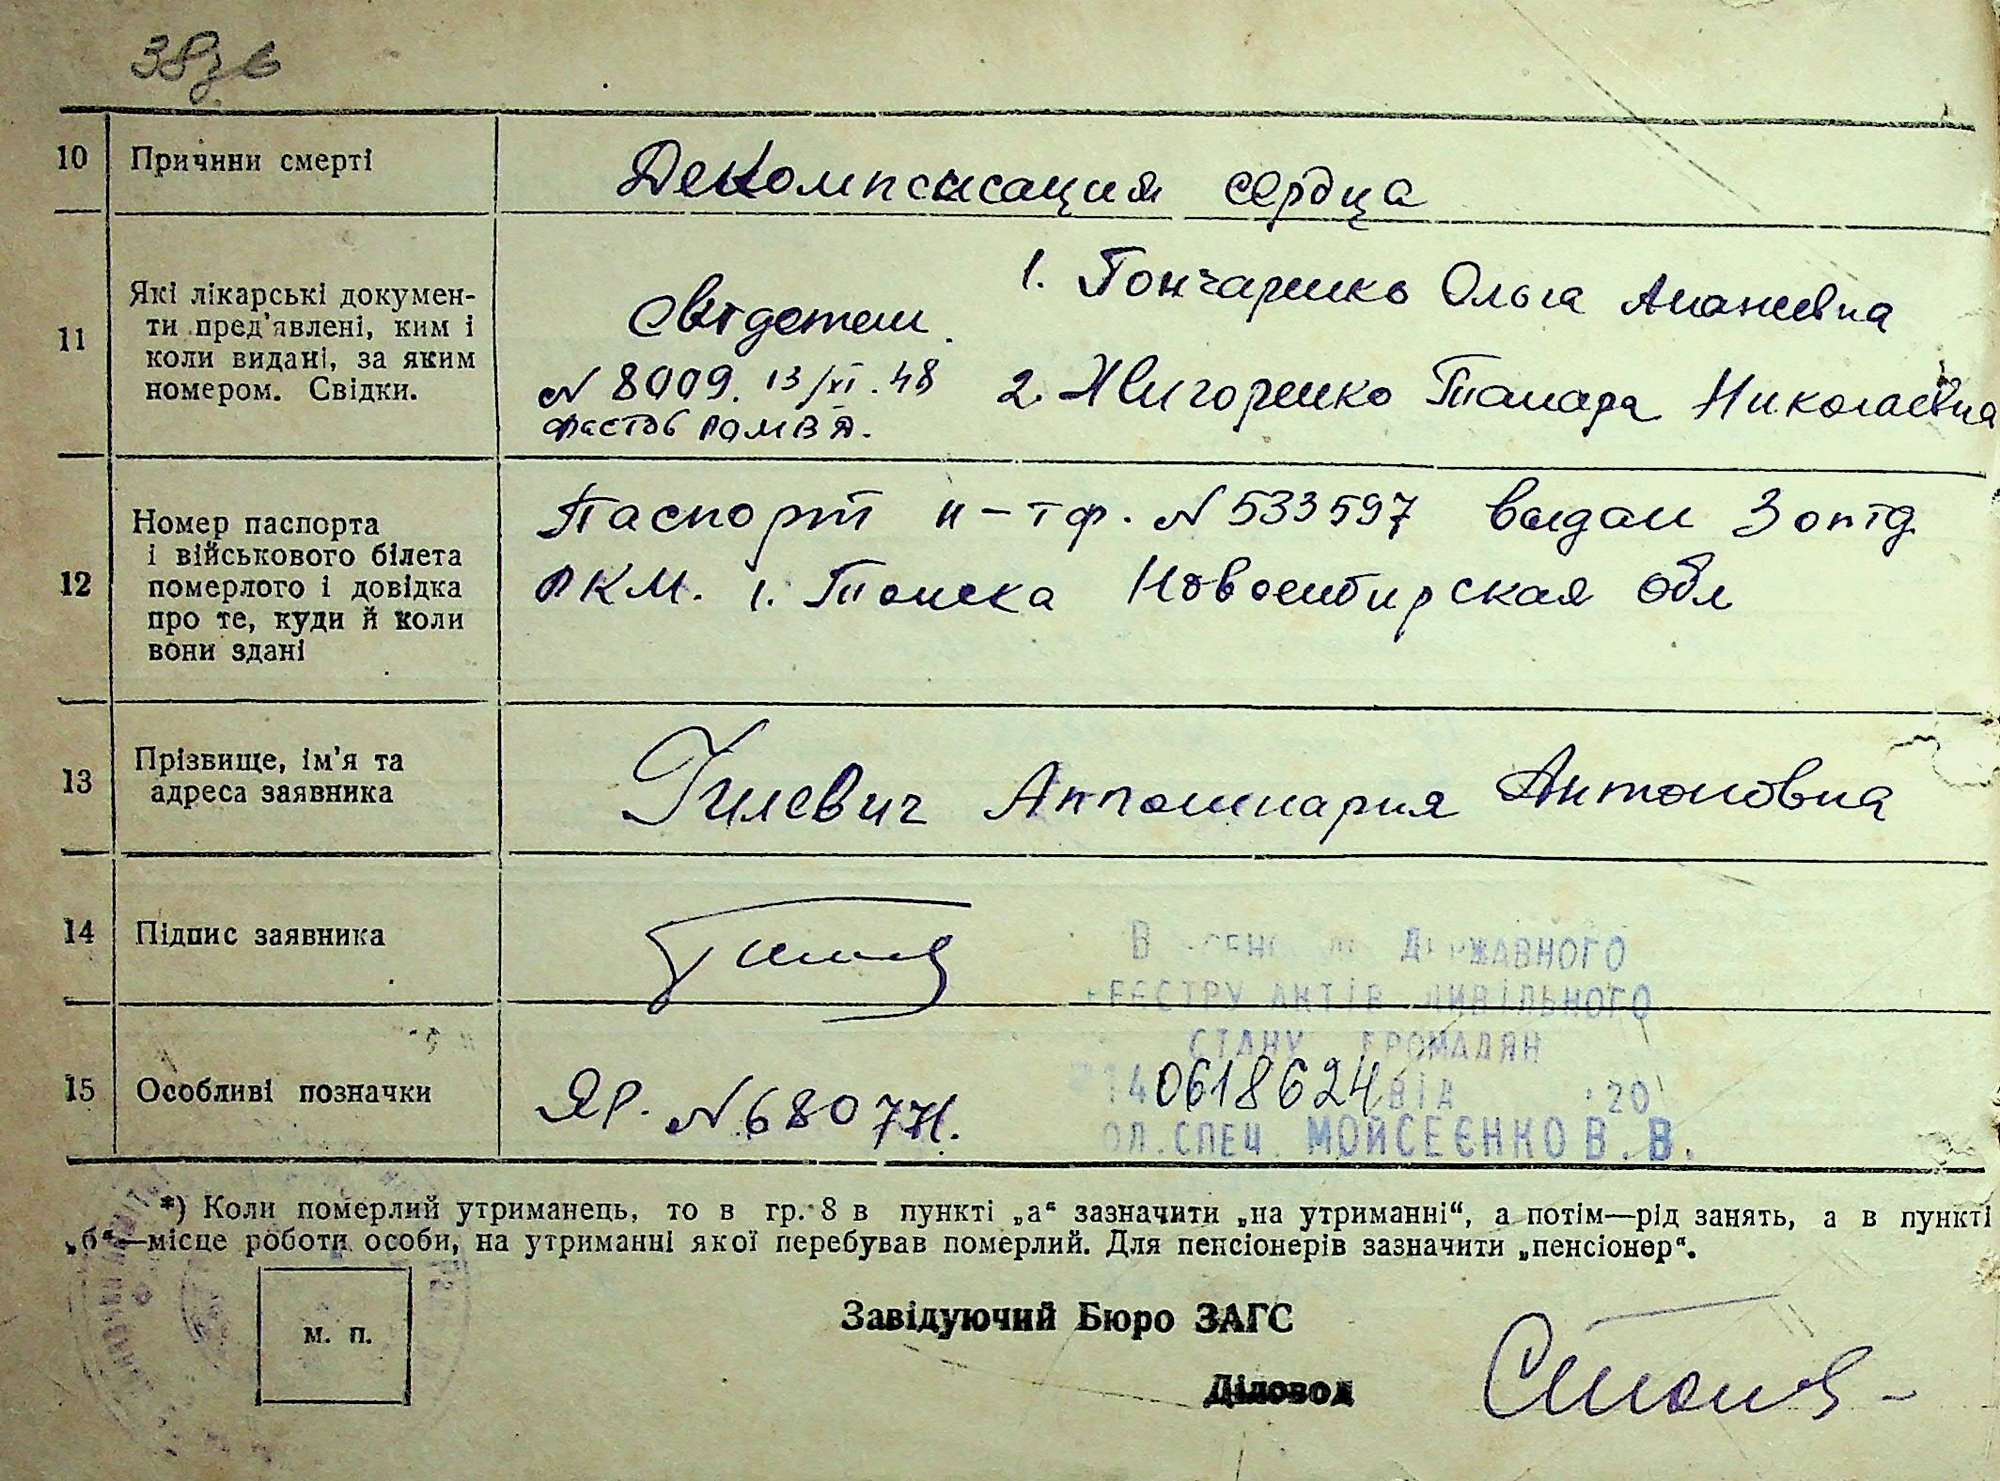 10 Причини смерті Декомпенсация сердца
11 Які лікарські докумен-
ти пред'явлені, ким і
коли видані, за яким
номером. Свідки.
Свідетели
№ 8009. 13/XI.48
Фастов
1. Гончаренко Ольга Ананиевна
2. Жигоренко Тамара Николаевна
12 Номер паспорта
і військового білета
померлого і довідка
про те, куди й коли
вони здані
Паспорт н-тф. № 533597 выдан 3 отд
РКМ. г. Томска Новосибирская обл
13 Прізвище, ім'я та
адреса заявника
Гилевич Апполинария Антоновна
14 Підпис заявника
15 Особливі позначки
ЯР. № 68077
ДЕРЖАВНОГО
РЕЄСТРУ АКТІВ ЦИВІЛЬНОГО
СТАНУ ГРОМАДЯН
0618624 ВІД 20
СПЕЦ. МОЙСЕЄНКО В.В.
*) Коли померлий утриманець, то в гр. 8 в пункті „а“ зазначити „на утриманні“, а потім—рід занять, а в пункті
„б“—місце роботи особи, на утриманні якої перебував померлий. Для пенсіонерів зазначити „пенсіонер“.
м. п.
Завідуючий Бюро ЗАГС
Діловод